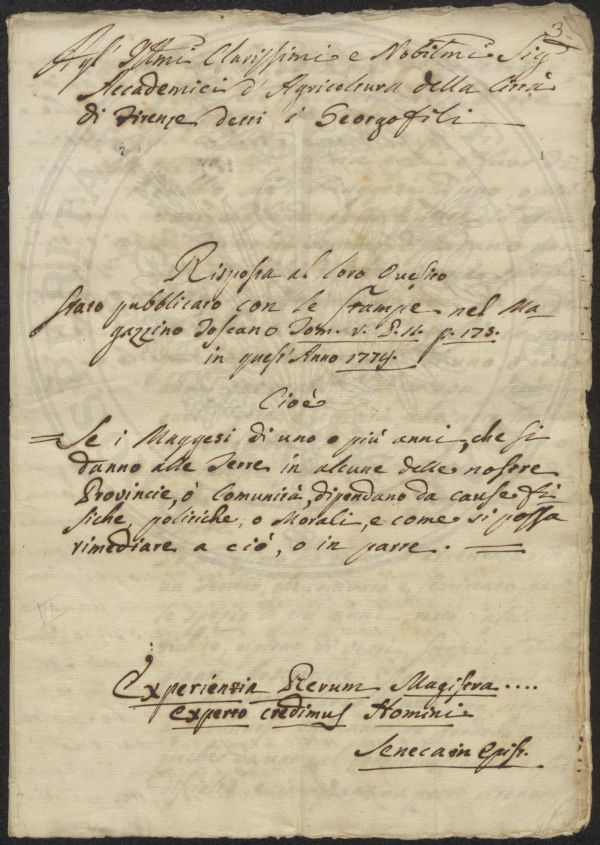 3.
Agl' Ill.mi Clarissimi e Nobilmi Sig.
Accademici d' Agricoltura della Città
di Firenze detti i Georgofili
Risposta al loro Quesito
stato pubblicato con le stampe nel Ma-
gazzino Toscano Tom. V. P. II. p. 178.
in quest' Anno 1774.
Cioè
= Se i Maggesi di uno o più anni, che si
danno alle Terre in alcune delle nostre
Provincie, o Comunità, dipendano da cause Fi
siche, politiche, o Morali, e come si possa
rimediare a ciò, o in parte. =
Experientia Rerum Magistra ....
experto credimus Homini
Seneca in Epist.